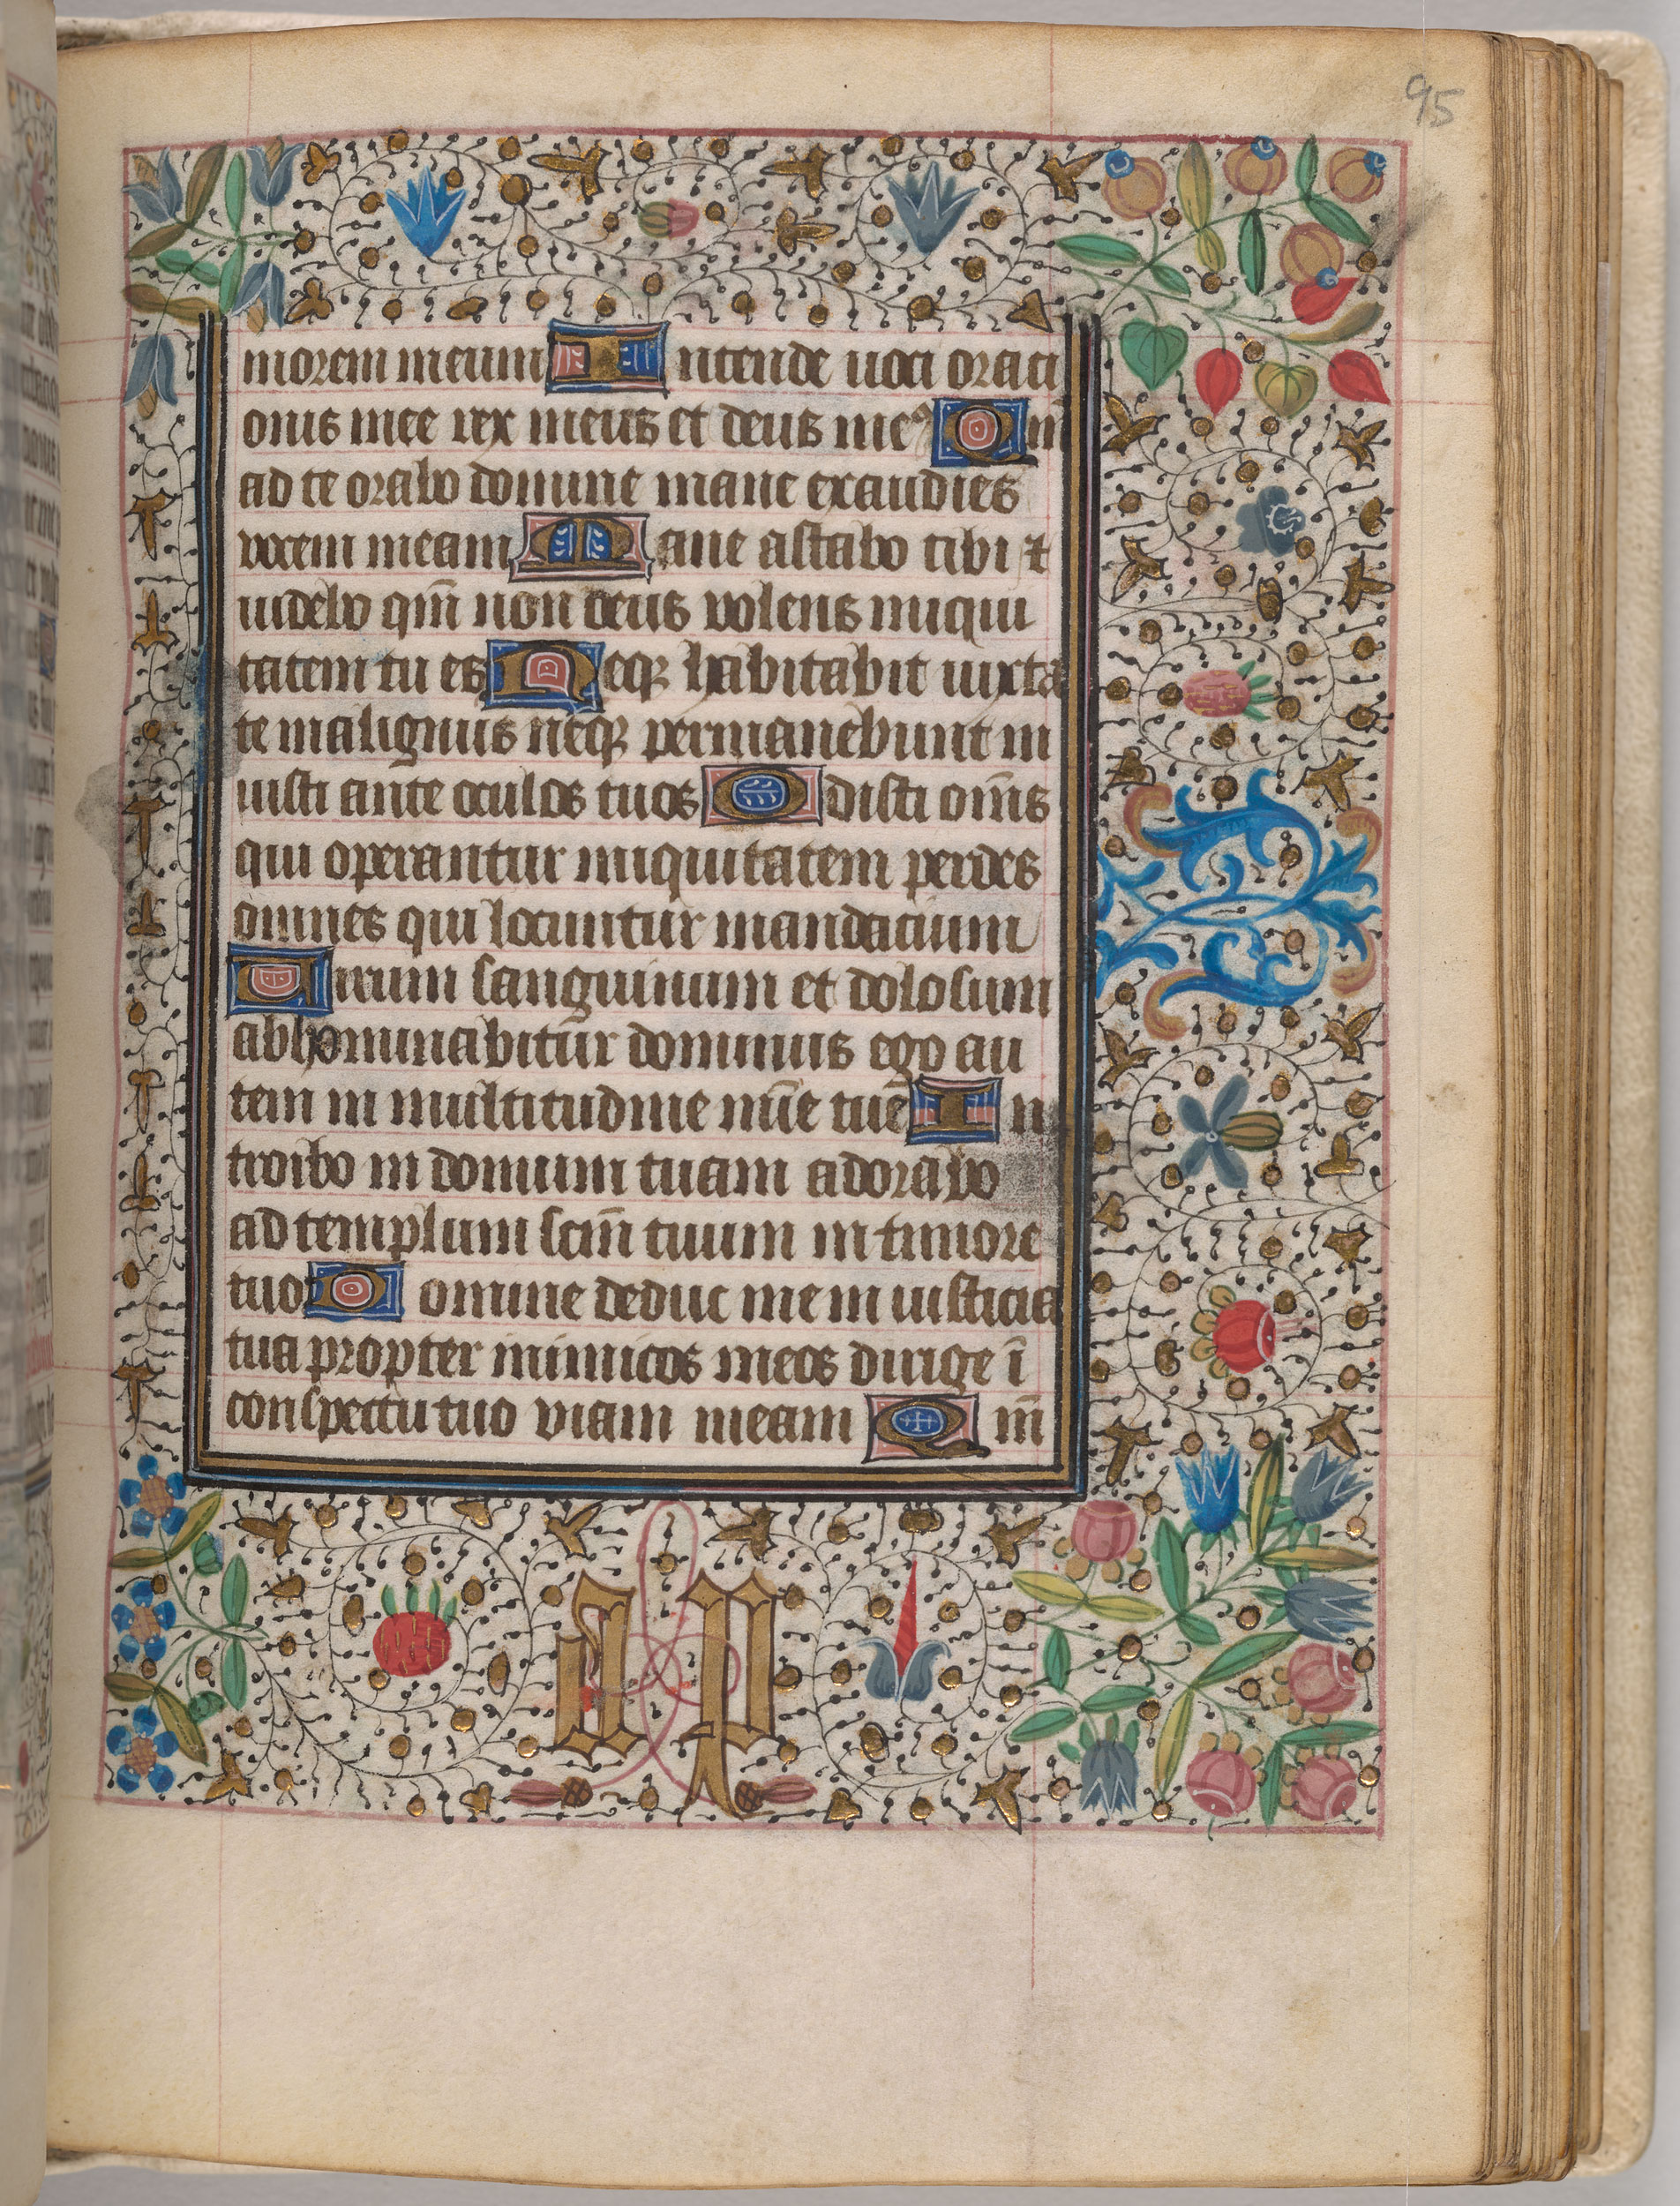 95
morem meum Intende uoci orati
onis mee rex meus et deus meꝰ Qm̄
ad te orabo domine mane exaudies
vocem meam Mane astabo tibi ⁊
uidebo qm̄ non deus volens iniqui
tatem tu es Neqꝫ habitabit iuxta
te malignus neqꝫ permanebunt in
iusti ante oculos tuos Odisti om̄s
qui operantur iniquitatem perdes
omnes qui locuntur mandacium
Uirum sanguinum et dolosum
abhominabitur dominus ego au
tem in multitudine mīe tue In
troibo in domum tuam adorabo
ad templum scm̄ tuum in timore
tuo Domine deduc me in iusticia
tua propter inimicos meos dirige ī
conspectu tuo viam meam Qm̄